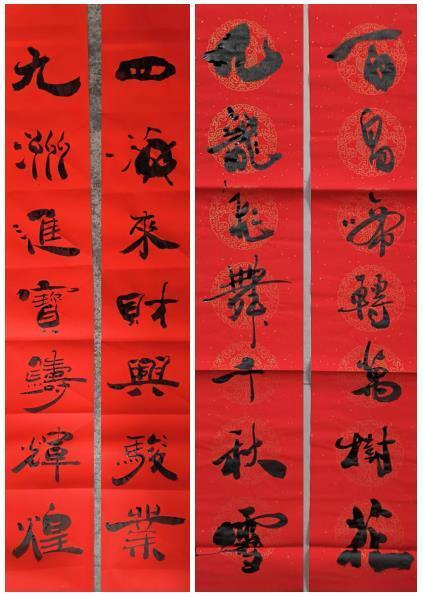 四海來財興駿業
九洲匯寶鑄輝煌
百昌啼轉萬樹花
九龍飛舞千秋雪